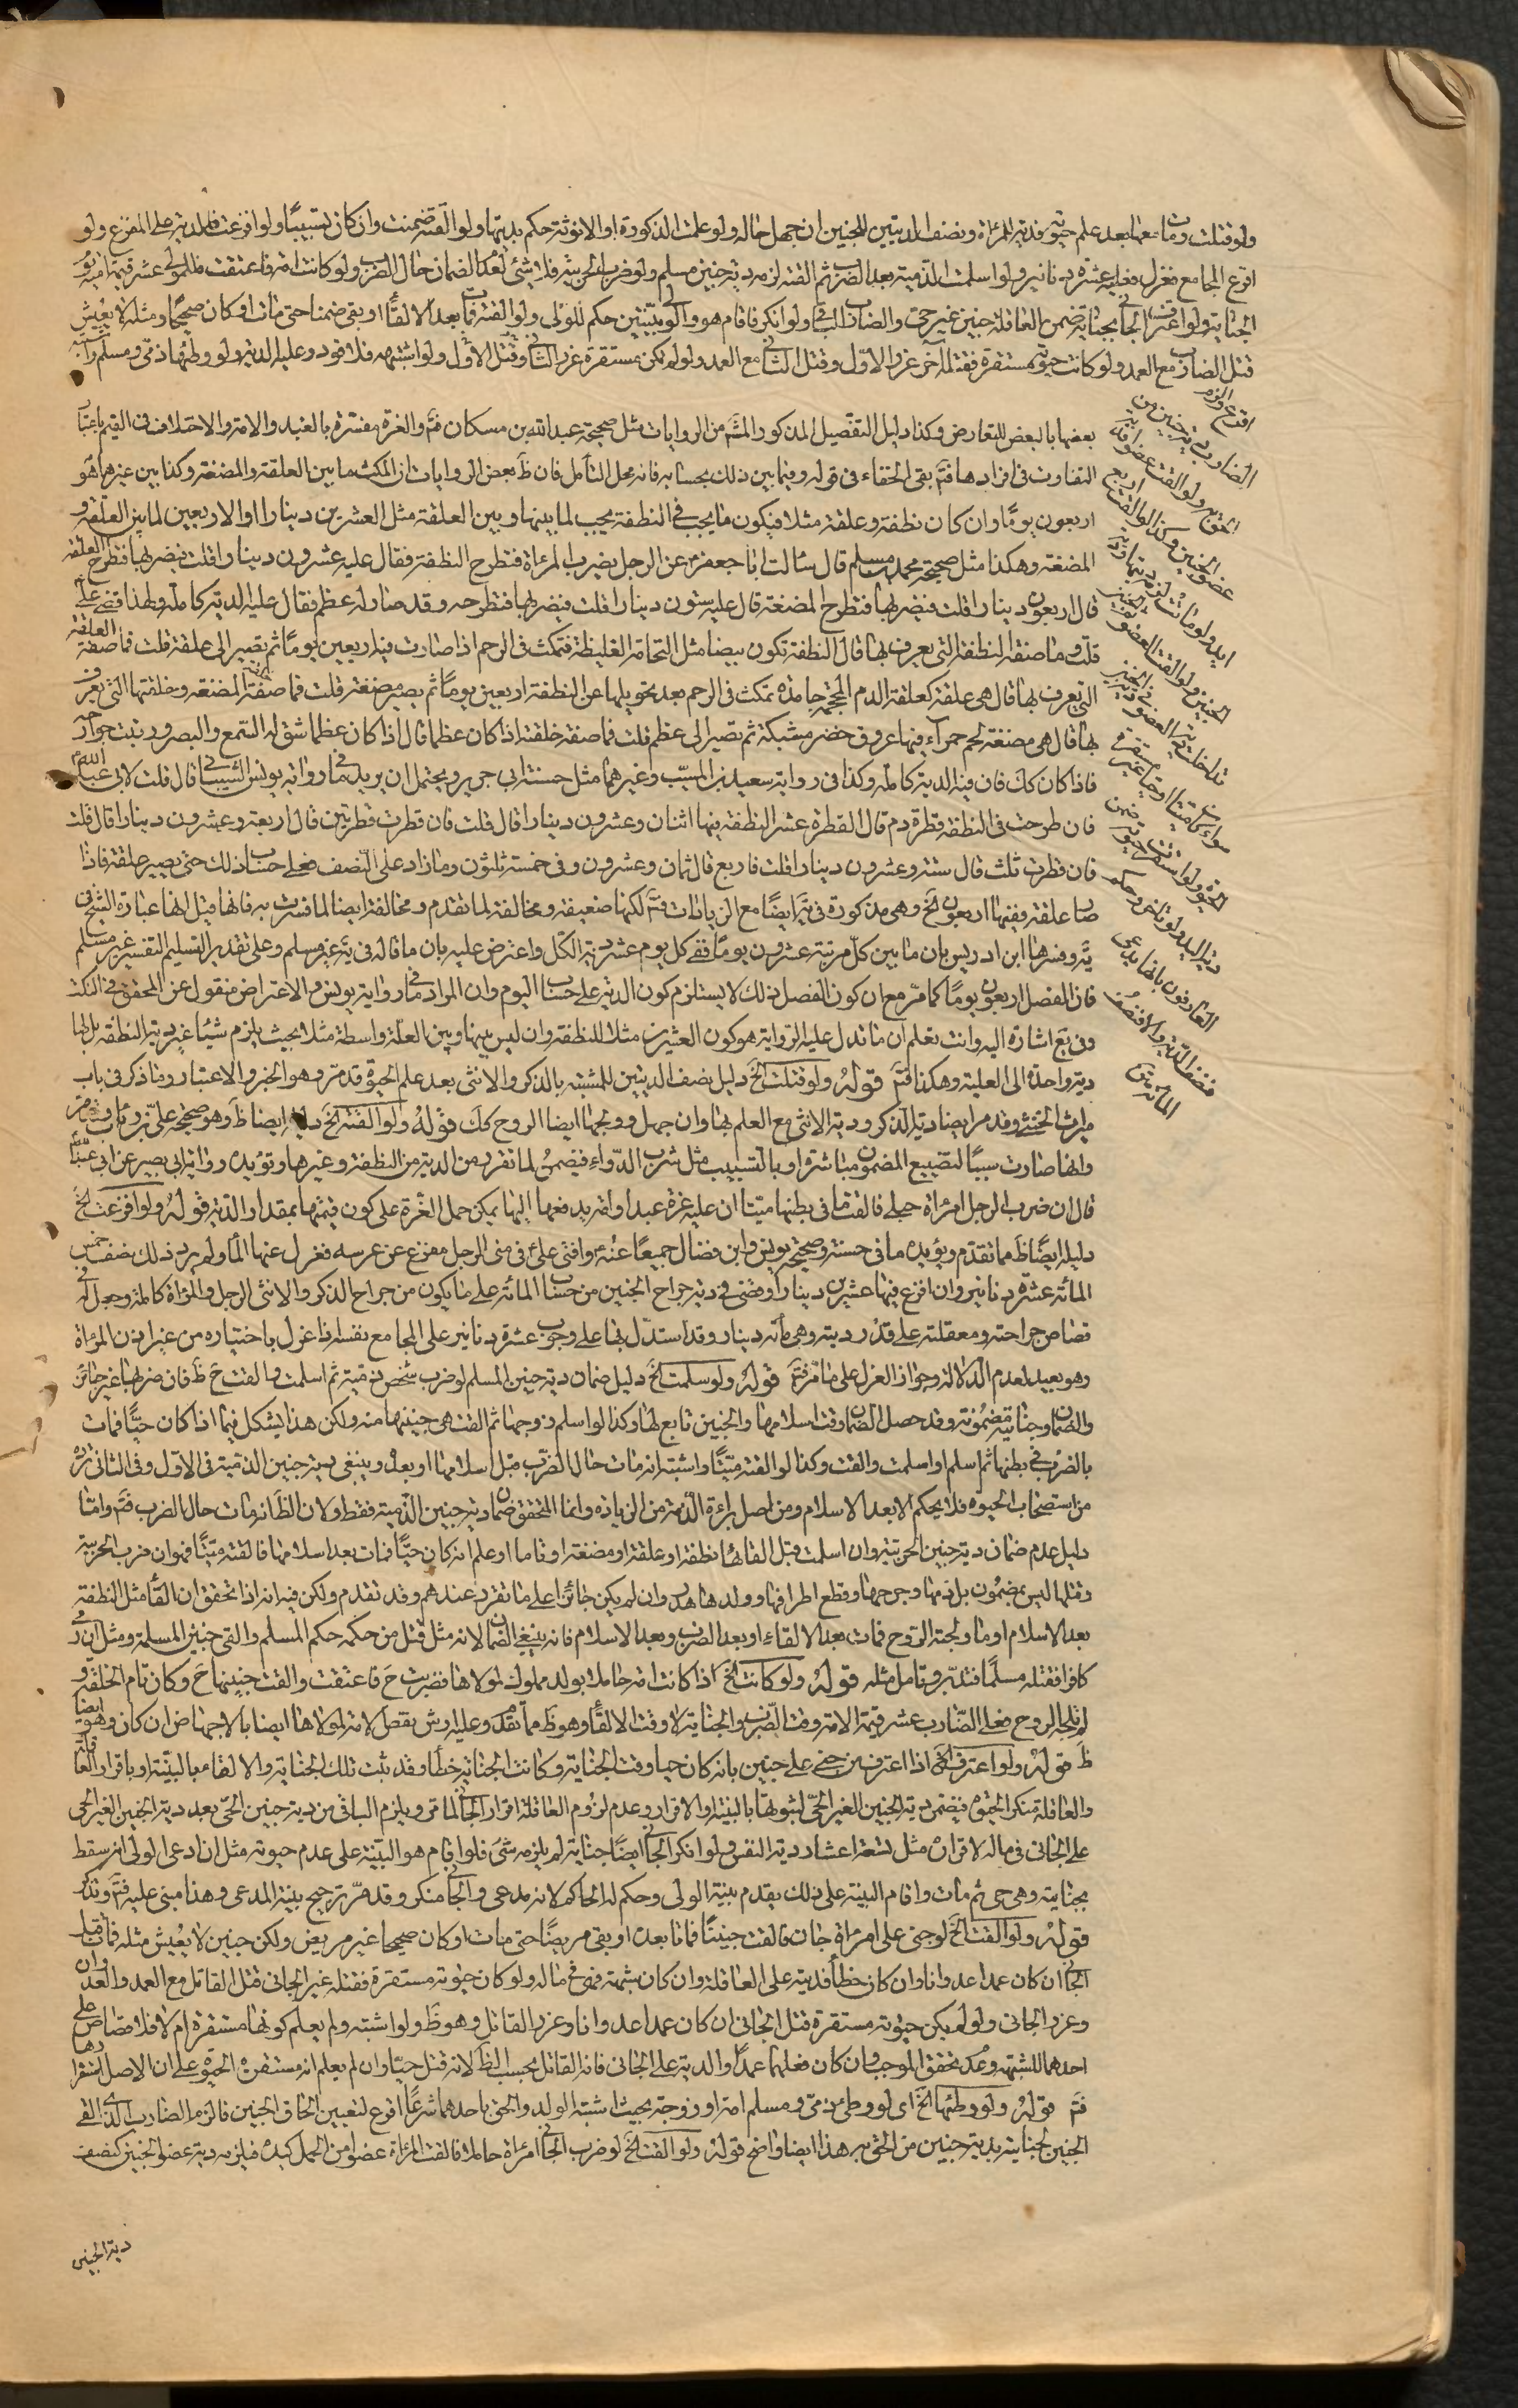 ولو قتلت ومات معها بعد علم حيوته فدية للمرأة ونصف الديتين للجنين ان جهل حاله ولو علمت الذكورة او الانوثة حكم بديتها ولو القته ضمنت وان كان تسبيبا ولو افزعت فالدية على المفزع ولو
افزع المجامع فعزل فعليه عشرة دنانير ولو اسلمت الذمية بعد الضرب ثم القته لزمه دية جنين مسلم ولو ضرب الحربية فلا شئ لعدم الضمان حال الضرب ولو كانت امة فاعتقت فللمولى عشر قيمة امه يوم
الجناية ولو اعترف الجاني بجنايته ضمن العاقلة جنين غير حي والضارب الباقي ولو انكر فاقام هو والولي بينتين حكم للولي ولو القته فمات بعد الالقاء او بقي ضمنا حتى مات او كان صحيحا ومثله لا يعيش
قتل الضارب مع العمد ولو كانت حيوته مستقرة فقتله آخر عزر الاول وقتل الثاني مع العمد ولو لم تكن مستقرة عزر الثاني وقتل الاول ولو اشتبه فلا قود وعليه الدية ولو وطئها ذمي ومسلم واشتبه
اقرع والزم
الضارب بدية جنين من
الحق به ولو القت عضوا فدية
عضو الجنين وكذا لو القت اربع
ايد ولو ماتت لزمه ديتها ودية
الجنين ولو القت العضو ثم الجنين
تداخلت دية العضو في الجنين
سواء كان ميتا او حيا غير مستقر
الحيوة ولو استقرت حيوته ضمن
دية اليد ولو تاخر وحكم
العارفون بانها يد حي
فنصف الدية والا فنصف
المائة
بعضها بالبعض للتعارض وكذا دليل التفصيل المذكور المثم من الروايات مثل صحيحة عبد الله بن مسكان فتم والغرة مفسرة بالعبد والامة والاختلاف في القيم باعتبار
التفاوت في افرادها فتم بقي الخفاء في قوله وفيما بين ذلك بحسابه فانه محل التأمل فان ظ بعض الروايات ان المكث ما بين العلقة والمضغة وكذا بين غيرهما هو
اربعون يوما وان كان نطفة وعلقة مثلا فيكون ما يجب في النطفة يجب لما بينها وبين العلقة مثل العشرين دينارا او الاربعين لما بين العلقة و
المضغة وهكذا مثل صحيحة محمد بن مسلم قال سالت ابا جعفر ع عن الرجل يضرب المرءاة فتطرح النطفة فقال عليه عشرون دينارا قلت فيضربها فتطرح العلقة
قال اربعون دينارا قلت فيضربها فتطرح المضغة قال عليه ستون دينارا قلت فيضربها فتطرحه وقد صار له عظم فقال عليه الدية كاملة ولهذا قضى علي
قلت وما صفة النطفة التي يعرف بها قال النطفة تكون بيضا مثل النخامة الغليظة فتمكث في الرحم اذا صارت فيه اربعين يوما ثم تصير الى علقة قلت فما صفة العلقة
التي تعرف بها قال هي علقة كعلقة الدم المحجمة جامدة تمكث في الرحم بعد تحويلها عن النطفة اربعين يوما ثم يصير مضغة قلت فما صفة المضغة وخلقتها التي تعرف
بها قال هي مضغة لحم حمراء فيها عروق خضر مشبكة ثم تصير الى عظم قلت فما صفة خلقته اذا كان عظما قال اذا كان عظما شق له السمع والبصر ورتبت جوارحه
فاذا كان كك فان فيه الدية كاملة وكذا في رواية سعيد بن المسيب وغيرهما مثل حسنة ابي جرير ويحتمل ان يريد ما في رواية يونس الشيباني قال قلت لابي عبد الله ع
فان طرحت في النطفة قطرة دم قال القطرة عشر النطفة فيها اثنان وعشرون دينارا قال قلت فان قطرت قطرتين قال اربعة وعشرون دينارا قال قلت
فان قطرت ثلث قال ستة وعشرون دينارا قلت فاربع قال ثمان وعشرون وفي خمسة ثلثون وما زاد على النصف فعلى حساب ذلك حتى يصير علقة فاذا
صار علقة ففيها اربعون الخ وهي مذكورة في يه ايضا مع الزيادات فتم لكنها ضعيفة ومخالفة لما تقدم ومخالفة ايضا لما فسرت به فانها قيل انها عبارة الشيخ في
يه وفسرها ابن ادريس بان ما بين كل مرتبة عشرون يوما ففي كل يوم عشر دية الكل واعترض عليه بان ما قاله في يه غير مسلم وعلى تقدير التسليم التفسير غير مسلم
فان الفصل اربعون يوما كما مر مع ان كون الفصل ذلك لا يستلزم كون الدية على حساب اليوم وان المراد ما في رواية يونس والاعتراض منقول عن المحقق في النكت
وفي يع اشارة اليه وانت تعلم ان ما تدل عليه الرواية هو كون العشرين مثلا للنطفة وان ليس بينها وبين العلقة واسطة مثلا بحيث يلزم شيئا غير دية النطفة بل لها
دية واحدة الى العلقة وهكذا فتم قوله ولو قتلت الخ دليل نصف الديتين للمشتبه بالذكر والانثى بعد علم الحيوة قد مر وهو الخبر والاعتبار وما ذكر في باب
ميراث الخنثى وقد مر ايضا دية الذكر ودية الانثى مع العلم بها وان جهل وولجها ايضا الروح كك قوله ولو القته الخ دليله ايضا ظ وهو صحيحة علي بن رئاب قد مر
وانها صارت سببا لتضييع المضمون مباشرة او بالتسبيب مثل شرب الدواء فيضمن لما تقرر من الدية من النطفة وغيرها وتؤيده رواية ابي بصير عن ابي عبد الله ع
قال ان ضرب الرجل امرءاة حبلى فالقت ما في بطنها ميتا ان عليه غرة عبد او امة يدفعها اليها يمكن حمل الغرة على كون قيمتها بمقدار الدية قوله ولو افزعت الخ
دليله ايضا ظ مما تقدم ويؤيده ما في حسنة وصحيحة يونس وابن فضال جميعا عنه ع وافتى علي ع في مني الرجل مفزع عن عرسه فعزل عنها الماء ولم يرد ذلك نصف خمس
المائة عشرة دنانير وان افرغ فيها عشرين دينارا وقضى في دية جراح الجنين من حساب المائة على ما يكون من جراح الذكر والانثى الرجل والمرأة كاملة وجعل له في
قصاص جراحته ومعقلته على قدر ديته وهي مأة دينار وقد استدل بها على وجوب عشرة دنانير على المجامع نفسه اذا عزل باختياره من غير اذن المرءاة
وهو بعيد لعدم الدلالة وجواز العزل على ما مر فتم قوله ولو سلمت الخ دليل ضمان دية جنين المسلم لو ضرب شخص ذمية ثم اسلمت والقت ح ظ فان ضربها غير جائز
والضمان وجناية مضمونة وقد حصل الضمان وقت اسلامها والجنين تابع لها وكذا لو اسلم زوجها ثم القت هي جنينها منه ولكن هذا يشكل فيما اذا كان حيا فمات
بالضرب في بطنها ثم اسلم او اسلمت والقت وكذا لو القته ميتا واشتبه انه مات حال الضرب قبل اسلامها او بعده وينبغي دية جنين الذمية في الاول وفي الثاني تردد
من استصحاب الحيوة فلا يحكم الا بعد الاسلام ومن اصل براءة الذمة من الزيادة وانما المتحقق ضمان دية جنين الذمية فقط ولان الظ انه مات حال الضرب فتم واما
دليل عدم ضمان دية جنين الحربية وان اسلمت وقبل القائها نطفة او علقة او مضغة او تاما او علم انه كان حيا فمات بعد اسلامها فالقته ميتا فهو ان ضرب الحربية
وقتلها ليس بمضمون بل دمها وجرحها وقطع اطرافها وولدها هدر وان لم يكن جائزا على ما تقرر عندهم وقد تقدم ولكن فيه انه اذا تحقق ان القاء مثل النطفة
بعد الاسلام او ما ولجته الروح فمات بعد الالقاء او بعد الضرب وبعد الاسلام فانه ينبغي الضمان لانه مثل قتل من حكمه حكم المسلم والقى جنين المسلمة ومثل ان رمى
كافرا فقتله مسلما فتدبر وتامل مثله قوله ولو كانت الخ اذا كانت امة حاملة بولد مملوك لمولاها فضربت ح فاعتقت والقت جنينها ح وكان تام الخلقة و
لم تلجه الروح فعلى الضارب عشر قيمة الامة وقت الضرب والجناية لا وقت الالقاء وهو ظ مما تقدم وعليه ارش نقص لامة لمولاها ايضا بالاجهاض ان كان وهو ايضا
ظ قوله ولو اعترف الخ اذا اعترف من جنى على جنين بانه كان حيا وقت الجناية وكانت الجناية خطأ وقد ثبت تلك الجناية والالقاء بالبينة او باقرار العاقلة
والعاقلة منكر الحيوة فيضمن دية الجنين الغير الحي لثبوتها بالبينة او الاقرار وعدم لزوم العاقلة اقرار الجاني لما مر ويلزم الباقي من دية جنين الحي بعد دية الجنين الغير الحي
على الجاني في ماله لاقراره مثل تسعة اعشار دية النفس ولو انكر الجاني ايضا جناية لم يلزمه شئ فلو اقام هو البينة على عدم حيوته مثل ان ادعى الولي انه سقط
بجنايته وهي حي ثم مات واقام البينة على ذلك يقدم بينة الولي وحكم له الحاكم لانه مدعي والجاني منكر وقد مر ترجيح بينة المدعي وهذا مبني عليه فتم وتذكر
قوله ولو القت الخ لو جنى على امرءاة جان فالقت جنينا فمات بعده او بقي مريضا حتى مات او كان صحيحا غير مريض ولكن جنين لا يعيش مثله فمات قتل
الجاني ان كان عمدا عدوانا وان كان خطأ فديته على العاقلة وان كان شبهة ففي ماله ولو كان حيوته مستقرة فقتله غير الجاني قتل القاتل مع العمد والعدوان
وعزر الجاني ولو لم يكن حيوته مستقرة قتل الجاني ان كان عمدا عدوانا وعزر القاتل وهو ظ ولو اشتبه ولم يعلم كونها مستقرة ام لا فلا قصاص على
احدهما للشبهة وعدم تحقق الموجب وان كان فعلهما عمدا والدية على الجاني فانه القاتل بحسب الظ لانه قتل حيا وان لم يعلم انه مستقرة الحيوة على ان الاصل استقرارها
فتم قوله ولو وطئها الخ اي لو وطئ ذمي ومسلم امة او زوجة بحيث اشتبه الولد والحق باحدهما شرعا اقرع لتعيين الحاق الجنين فالزم الضارب الذي القى
الجنين لجنايته بدية جنين من الحق به هذا ايضا واضح قوله ولو القت الخ لو ضرب الجاني امرءاة حاملة فالقت المرءاة عضوا من الحمل كيده فيلزمه دية عضو الجنين كنصف
دية الجنين